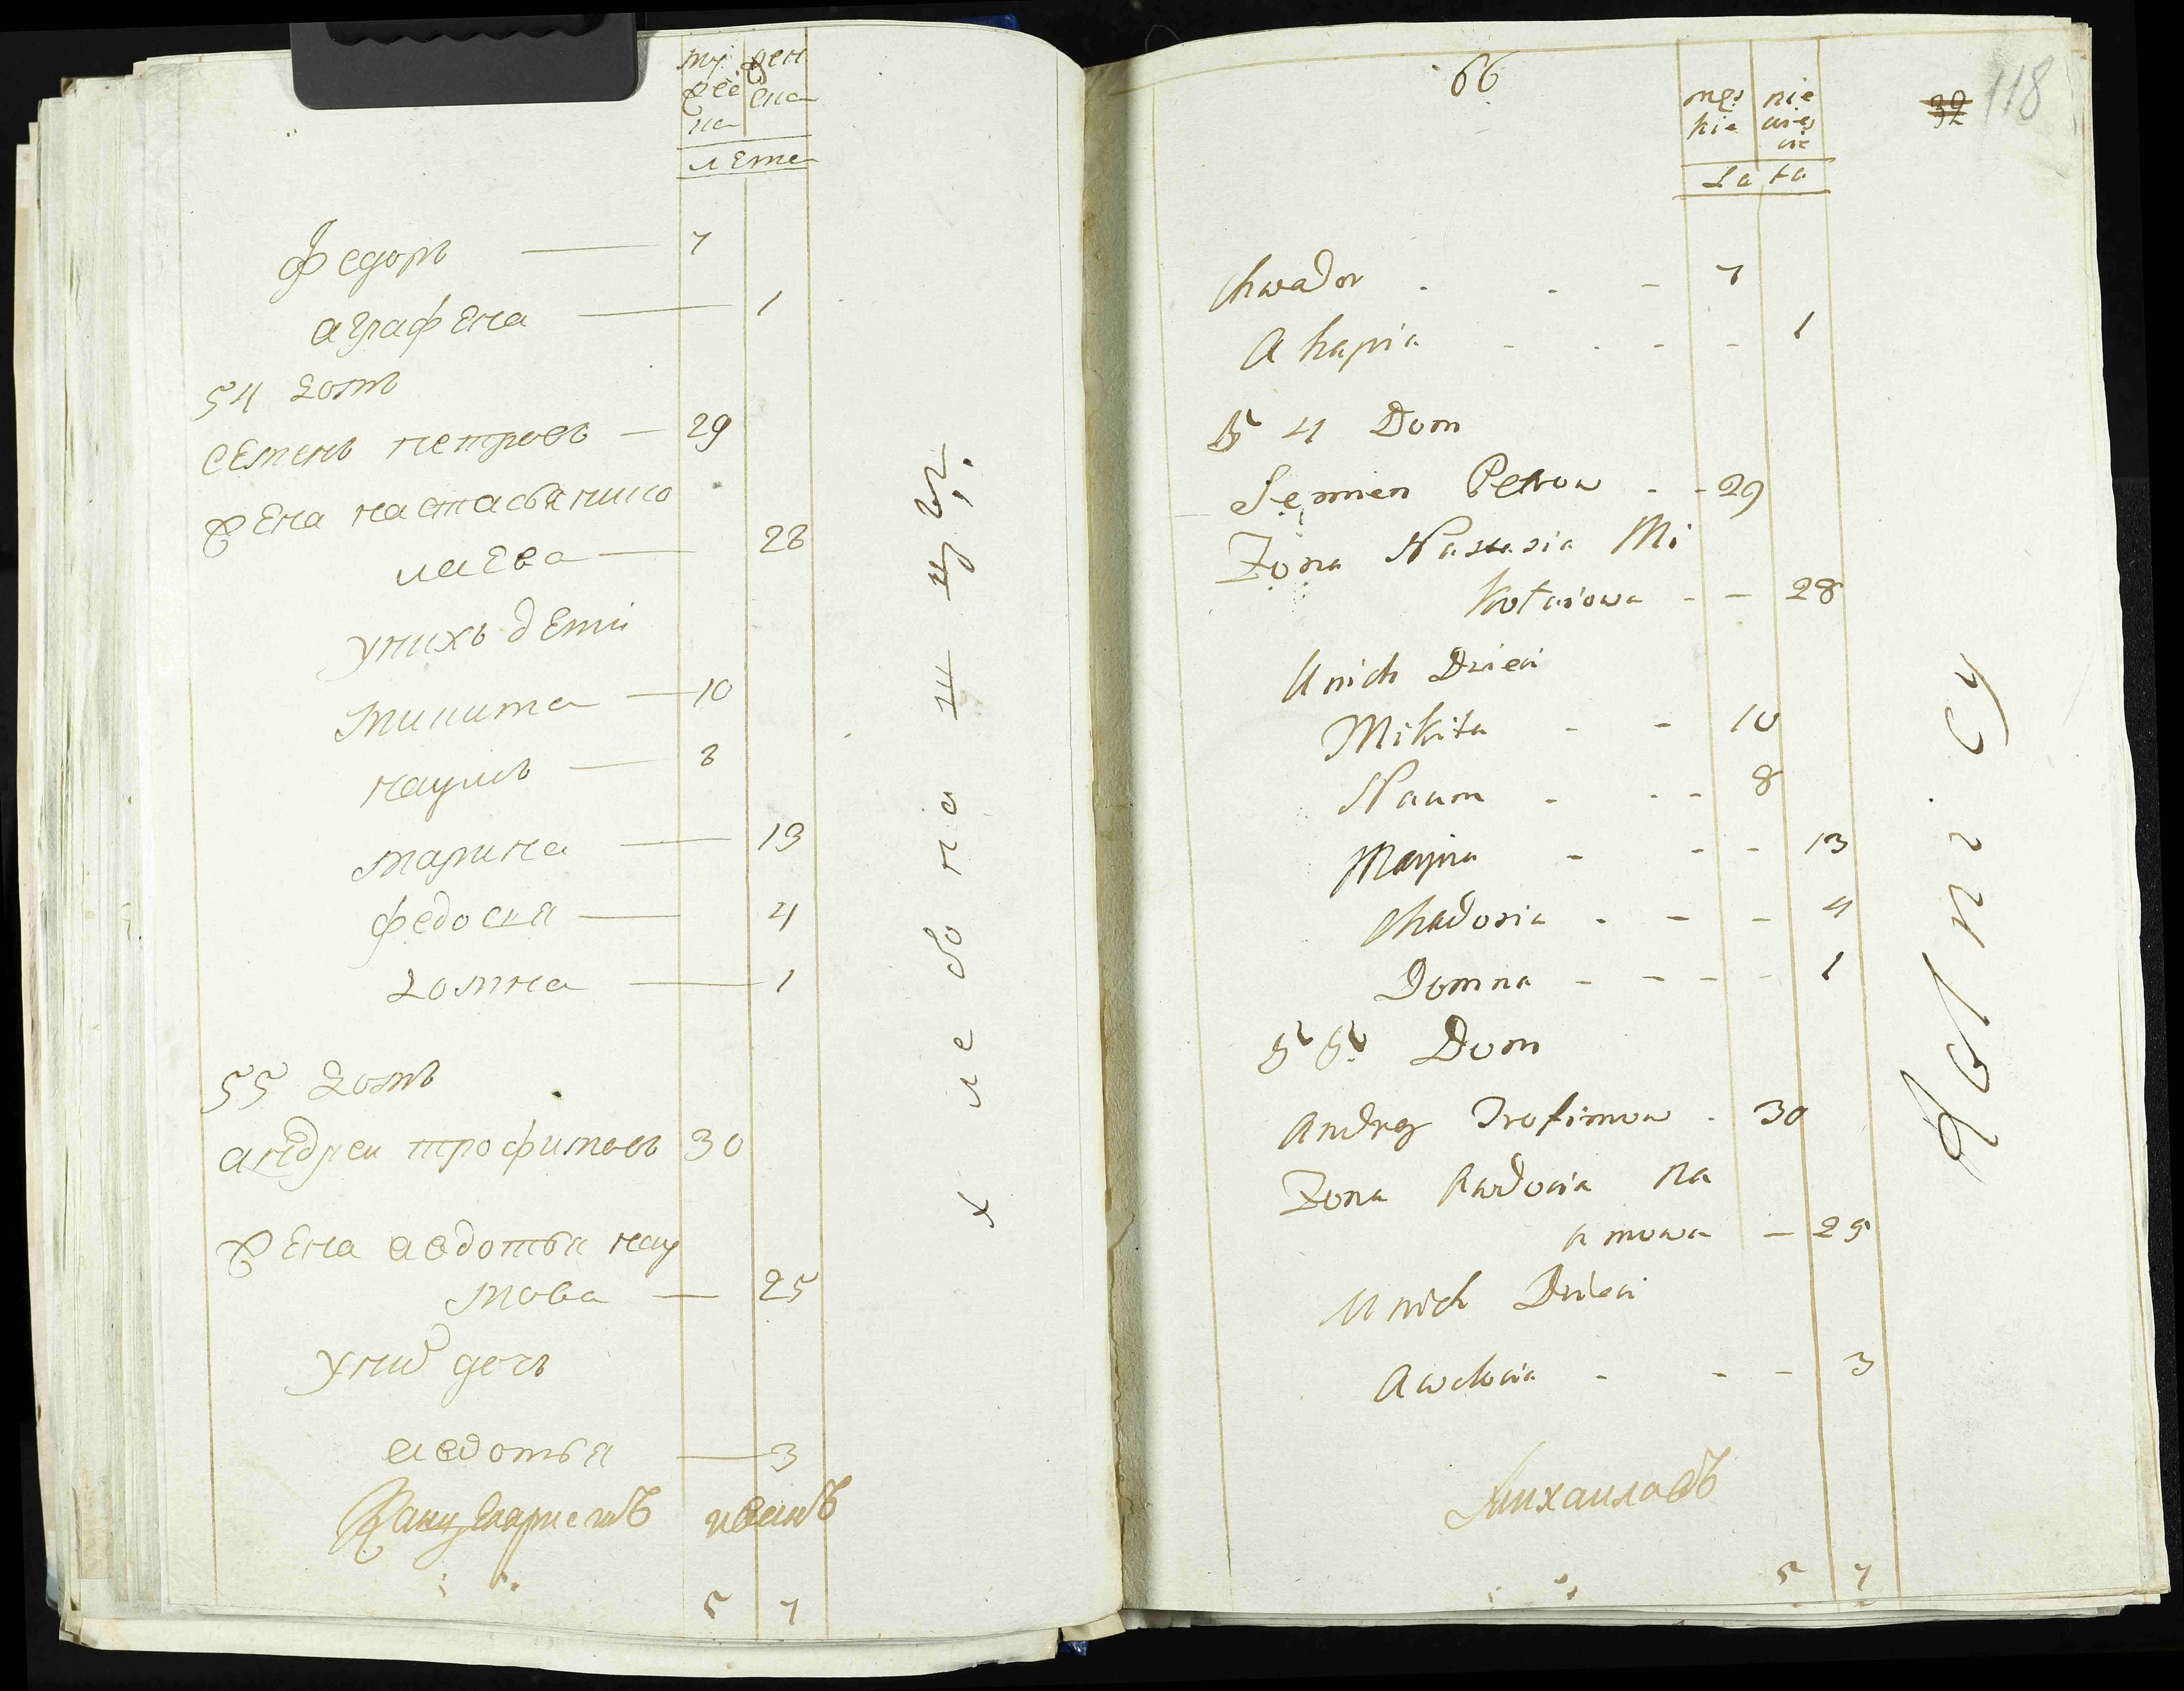 му жен
же ска
на
лета
федоръ — 7
аграфена — 1
54 домъ
семенъ петровъ — 29
жена настасья мико
лаева — 28
у нихъ дети
микита — 10
наумъ — 8
марина — 13
федосия — 4
домна — 1
55 домъ
андреи трофимовъ 30
жена авдотья нау
мова — 25
у них дочь
авдотья — 3
иванъ
5 7
хлебопа
66
męs nie
kie wie
ście
Lata
39 118
Chwador - - - 7
Ahapia - - - - 1
54 Dom
Semien Petrow - - 29
Zona Nastasia Mi
kołaiowa - - 28
U nich Dzieci
Mikita - - 10
Naum - - - 8
Maryna - - - 13
Chadosia - - - 4
Domna - - - - 1
55 Dom
Andrey Trofimow - 30
Zona Awdocia Na
umowa - 25
U nich Dzieci
Awdocia - - - 3
Михаиловъ
5 7
Rolnicy